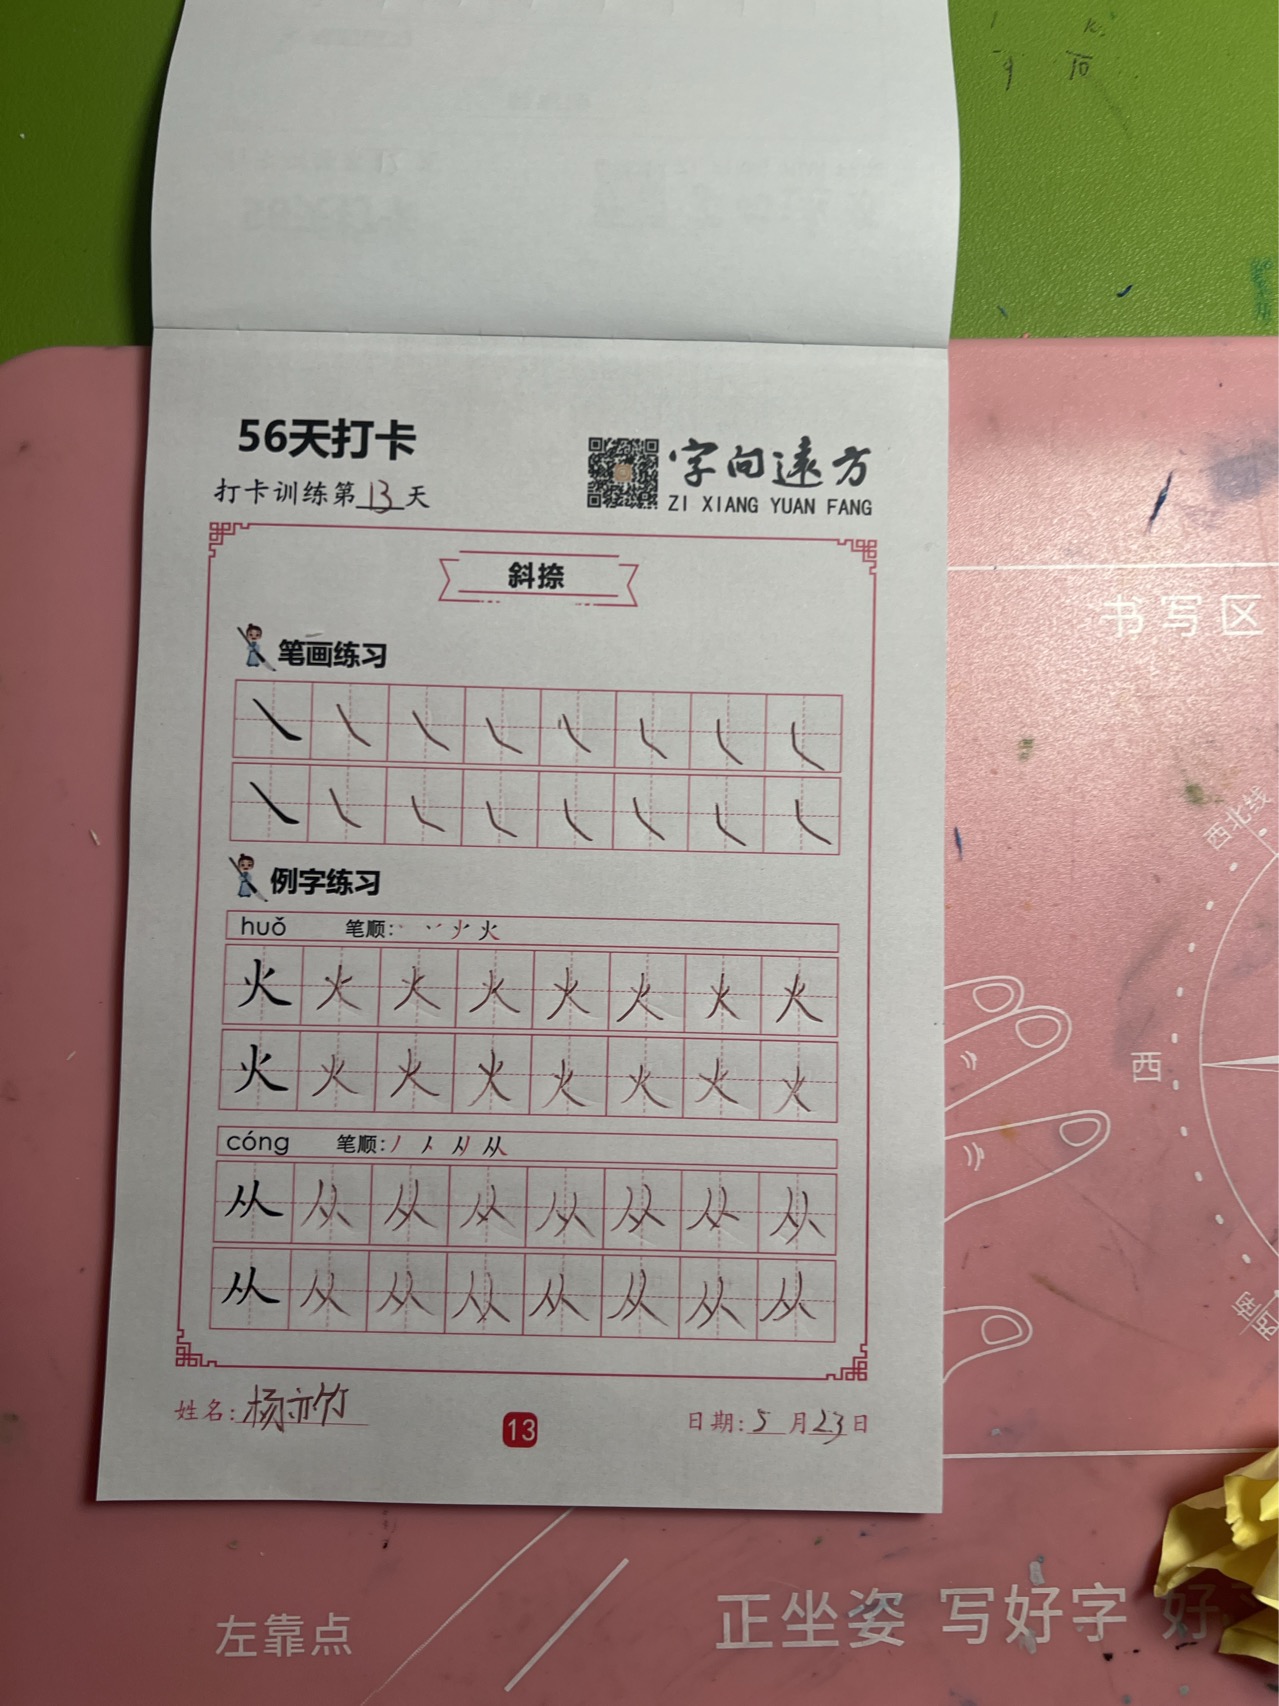 56天打卡
打卡训练第13天
字向远方
ZI XIANG YUAN FANG
斜捺
笔画练习
例字练习
huǒ 笔顺:丶丷少火
火火火火火火火火
火火火火火火火火
cóng 笔顺:丿人从从
从从从从从从从从
从从从从从从从从
姓名:杨亦竹
13
日期:5月23日
书写区
西北线
西
西南
左靠点
正坐姿 写好字 好